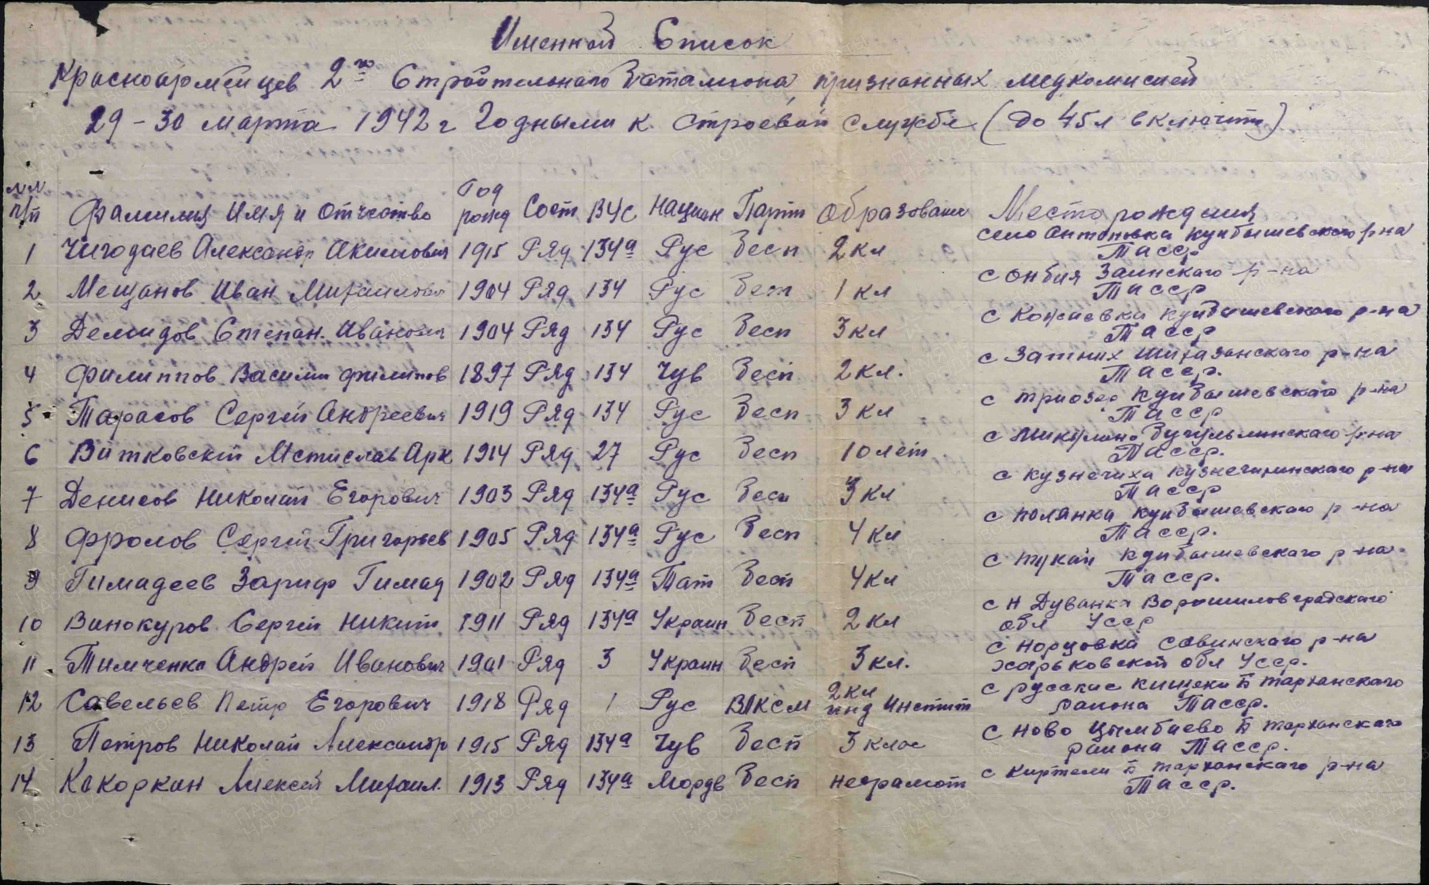 Именной Список
Красноармейцев 2го Строительного Батальона признанных медкомисией
29-30 марта 1942 г Годными к строевой службе (до 45 л включит)
№№ п/п Фамилия Имя и Отчество Год рожд Сост ВУС Национ Парт Образовани Место рождения
1 Чигодаев Александр Акимович 1915 Ряд 134а Рус Бесп 2 кл село Антоновка Куйбышевского р-на
Тасср
2 Мещанов Иван Михаилович 1904 Ряд 134 Рус Бесп 1 кл с Онбия Заинского р-на
Тасср
3 Демидов Степан Иванович 1904 Ряд 134 Рус Бесп 3 кл с Кожаевка Куйбышевского р-на
Тасср
4 Филиппов Василий Филипов 1897 Ряд 134 Чув Бесп 2 кл. с р-на
Тасср.
5 Тарасов Сергей Андреевич 1919 Ряд 134 Рус Бесп 3 кл с Триозер Куйбышевского р-на
Тасср
6 Витковский Мстислав Арк 1914 Ряд 27 Рус бесп 10 лет с Микулино Бугульминского р-на
Тасср.
7 Денисов Николай Егорович 1903 Ряд 134а Рус Бесп 3 кл с Кузнечиха Кузнечихинского р-на
Тасср
8 Фролов Сергей Григорьев 1905 Ряд 134а Рус Бесп 4 кл с Полянка Куйбышевского р-на
Тасср.
9 Гимадеев Зариф Гимад 1902 Ряд 134а Тат Бесп 4 кл с Тукай Куйбышевского р-на
Тасср.
10 Винокуров Сергей Никит 1911 Ряд 134а Украин Бесп 2 кл с Н Дуванка Ворошиловградского
обл Усср
11 Тимченко Андрей Иванович 1901 Ряд 3 Украин Бесп 3 кл. с Норцовка Савинского р-на
Харьковской обл Усср.
12 Савельев Петр Егорович 1918 Ряд 1 Рус ВЛКСМ 2 кл инд Инстит с Русские Кищеки Б Тарханского
района Тасср.
13 Петров Николай Александр 1915 Ряд 134а Чув Бесп 3 клас с Ново Цымбаево Б Тарханского
района Тасср.
14 Какоркин Алексей Михаил. 1913 Ряд 134а Мордв Бесп неграмот с Киртели Б Тарханского р-на
Тасср.